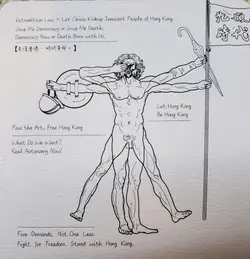 Extradition Law = Let China Kidnap Innocent People of Hong Kong.
Give Me Democracy or Give Me Death.
Democracy Now or Death Then with Us.
光復
時代
Let Hong Kong
Be Hong Kong
Pass the Act, Free Hong Kong
What Do We Want?
Real Autonomy Now!
Five Demands, Not One Less.
Fight for Freedom. Stand with Hong Kong.